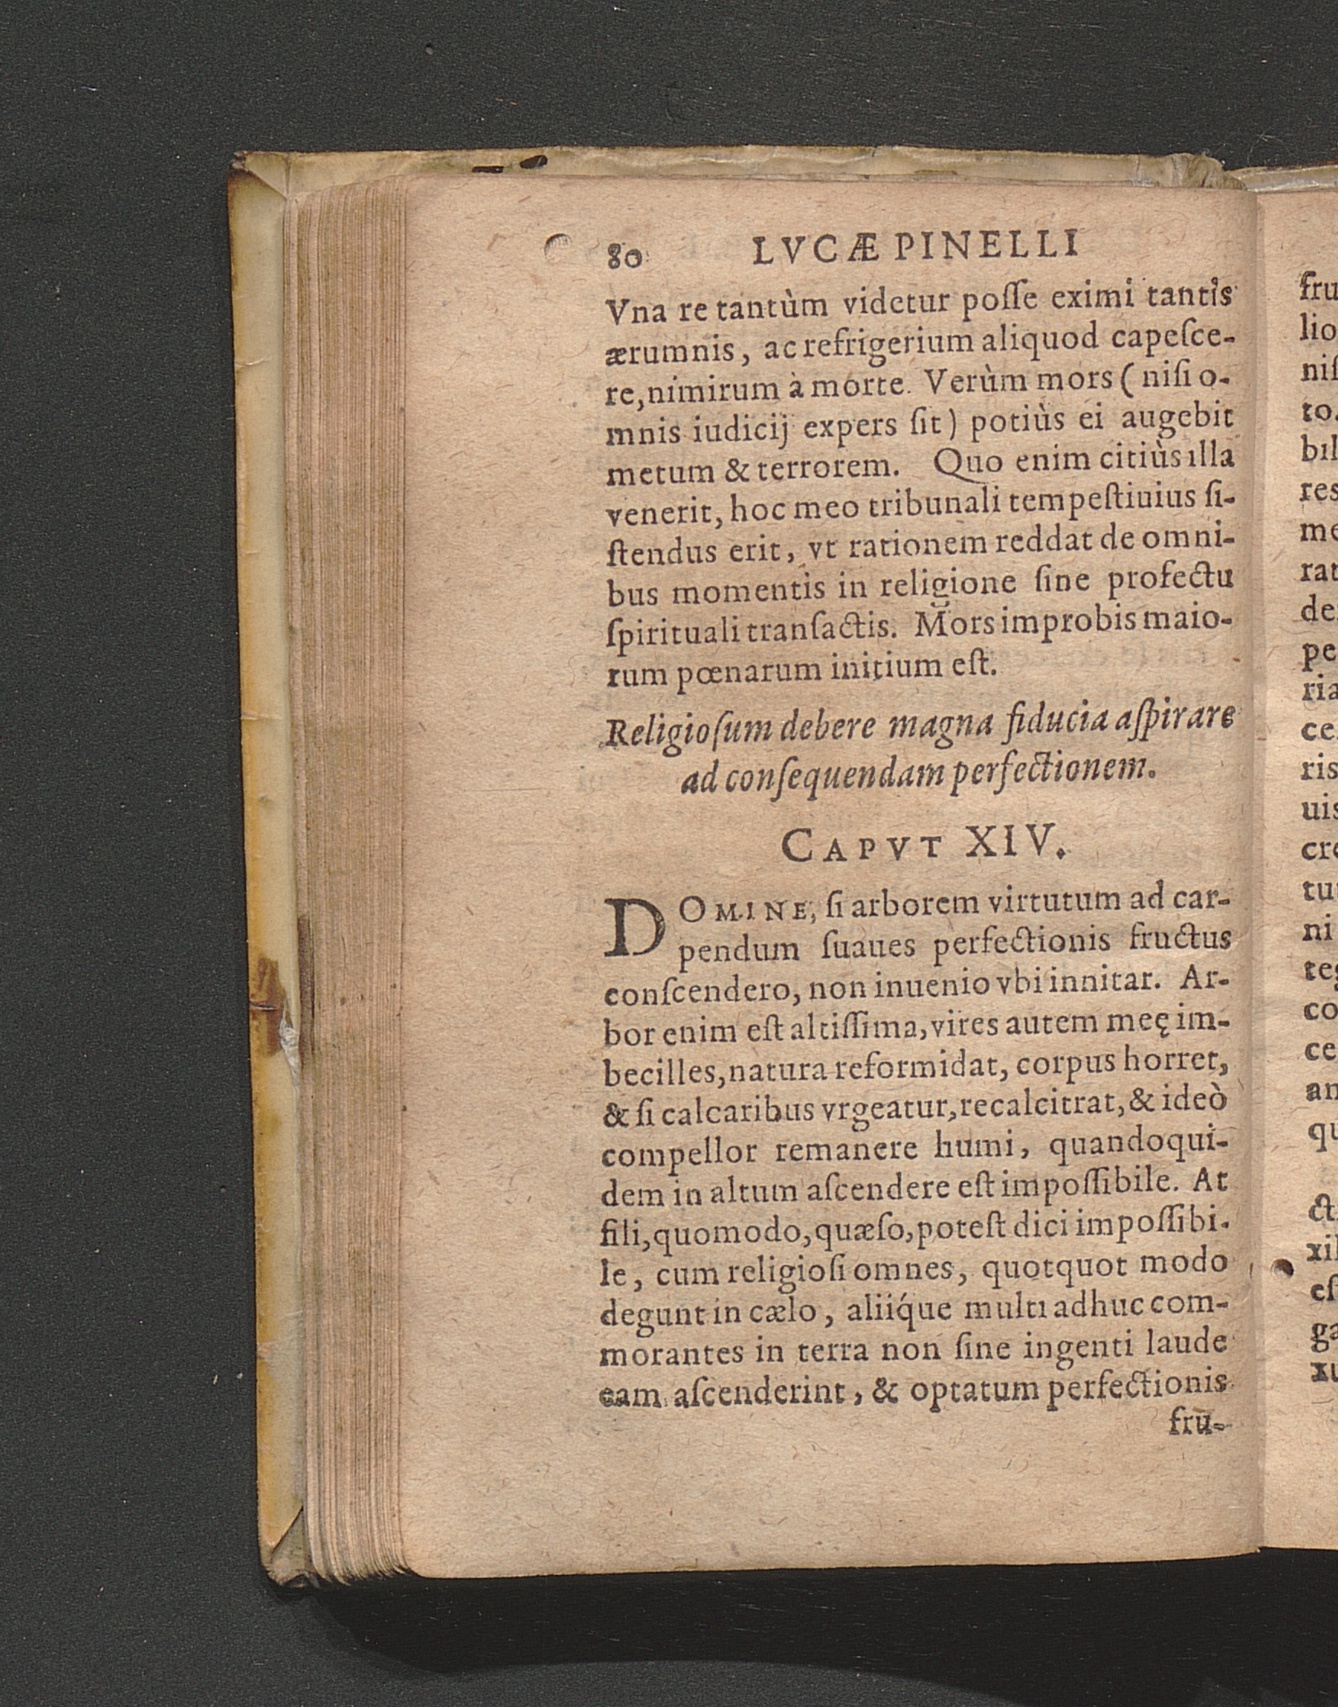 80 LVCÆ PINELLI
Vna re tantùm videtur poſſe eximi tantis
ærumnis, ac refrigerium aliquod capeſce-
re, nimirum à morte. Verùm mors ( niſi o-
mnis iudicij expers ſit) potiùs ei augebit
metum & terrorem. Quo enim citiùs illa
venerit, hoc meo tribunali tempeſtiuius ſi-
ſtendus erit, vt rationem reddat de omni-
bus momentis in religione ſine profectu
ſpirituali tranſactis. Mors improbis maio-
rum pœnarum initium eſt.
Religioſum debere magna fiducia aſpirare
ad conſequendam perfectionem.
CAPVT XIV.
DOMINE, ſi arborem virtutum ad car-
pendum ſuaues perfectionis fructus
conſcendero, non inuenio vbi innitar. Ar-
bor enim eſt altiſſima, vires autem meę im-
becilles, natura reformidat, corpus horret,
& ſi calcaribus vrgeatur, recalcitrat, & ideò
compellor remanere humi, quandoqui-
dem in altum aſcendere eſt impoſſibile. At
fili, quomodo, quæſo, poteſt dici impoſſibi-
le, cum religioſi omnes, quotquot modo
degunt in cælo, aliiq́ue multi adhuc com-
morantes in terra non ſine ingenti laude
eam aſcenderint, & optatum perfectionis
fru-
fru
lio
niſ
to.
bil
res
me
rat
de
pe
ria
ce
ris
uis
cre
tu
ni
teg
co
ce
an
qu
ct
xil
eſ
ga
xu